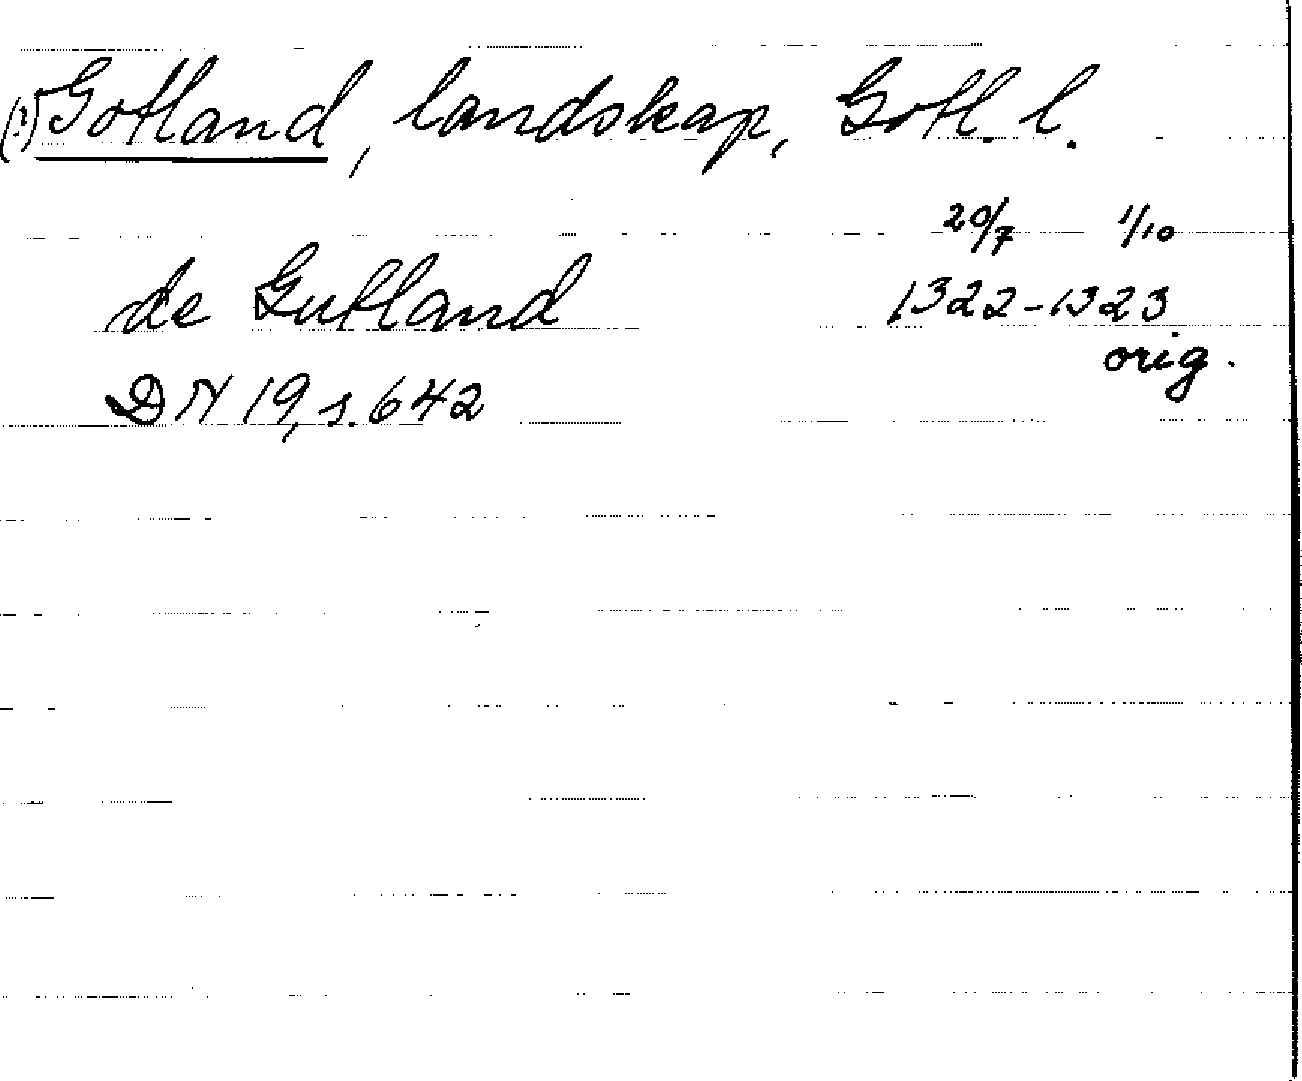 (?) Gotland, landskap, Gotl. l.
20/7 1/10
de Gutland 1322-1323
orig.
DN 19, s. 642